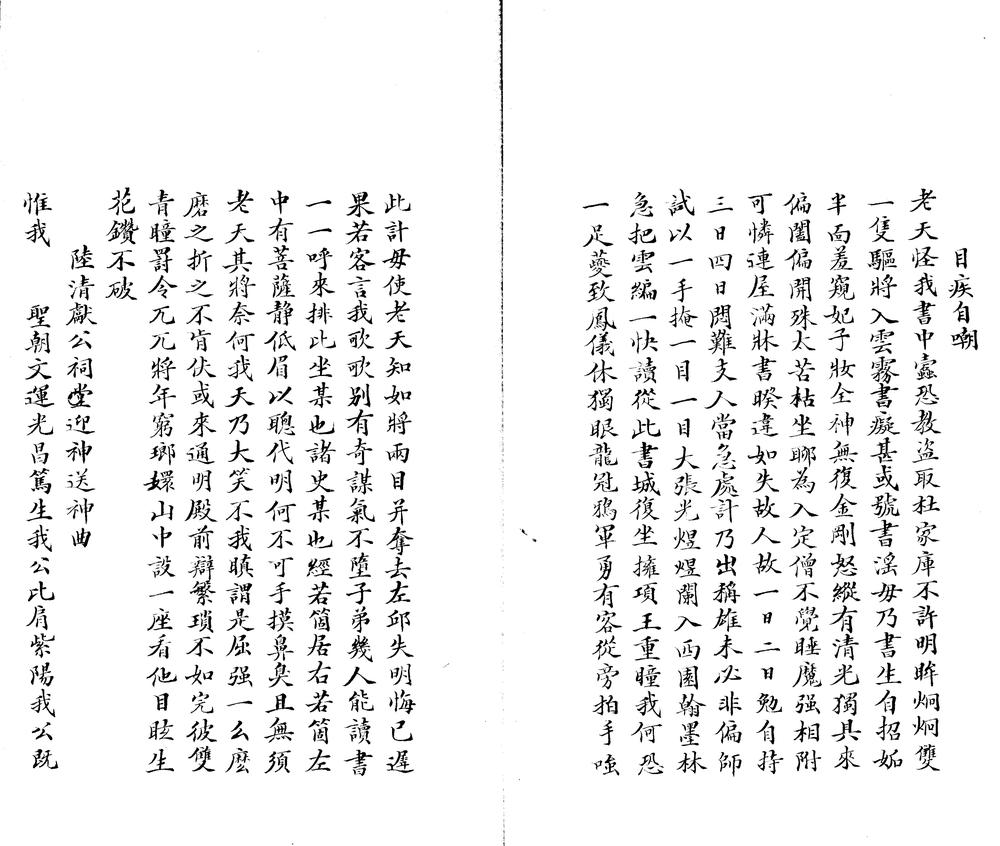 目疾自嘲
老天怪我書中蠹恐教盜取杜家庫不許明眸炯炯雙
一隻驅將入雲霧書癡甚或號書淫毋乃書生自招妬
半面羞窺妃子妝全神無復金剛怒縱有清光獨具來
偏闔偏開殊太苦枯坐聊為入定僧不覺睡魔强相附
可憐連屋滿牀書暌違如失故人故一日二日勉自持
三日四日悶難支人當急處計乃出稱雄未必非偏師
試以一手掩一目一目大張光煜煜闌入西園翰墨林
急把雲編一快讀從此書城復坐擁項王重瞳我何恐
一足夔致鳳儀休獨眼龍冠鴉軍勇有客從旁拍手嗤
此計毋使老天知如將兩目并奪去左邱失明悔已遲
果若客言我歌歌別有奇謀氣不墮子弟幾人能讀書
一一呼來排此坐某也諸史某也經若箇居右若箇左
中有菩薩靜低眉以聰代明何不可手摸鼻臭且無須
老天其將奈何我天乃大笑不我瞋謂是屈强一么麼
磨之折之不肯伏或來通明殿前辯繁瑣不如完彼雙
青瞳罰令兀兀將年窮瑯嬛山中設一座看他目眩生
花鑽不破
陸清獻公祠堂迎神送神曲
惟我　聖朝文運光昌篤生我公比肩紫陽我公既